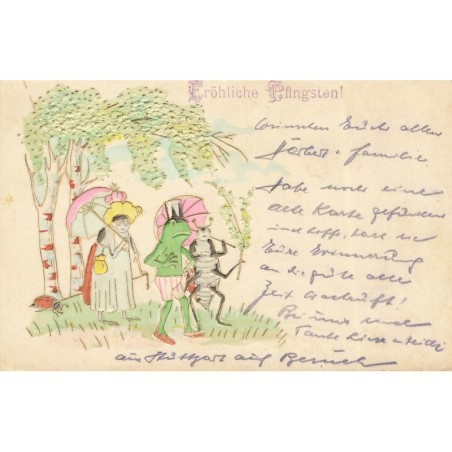 Fröhliche Pfingsten!
wünschen Euch allen
Herbert u. Familie.
Habe noch eine
alte Karte gefunden
und hoffe, dass sie
Eure Erinnerung
an die gute alte
Zeit
Bei uns sind
Tante Liesel u.
aus Stuttgart auf Besuch